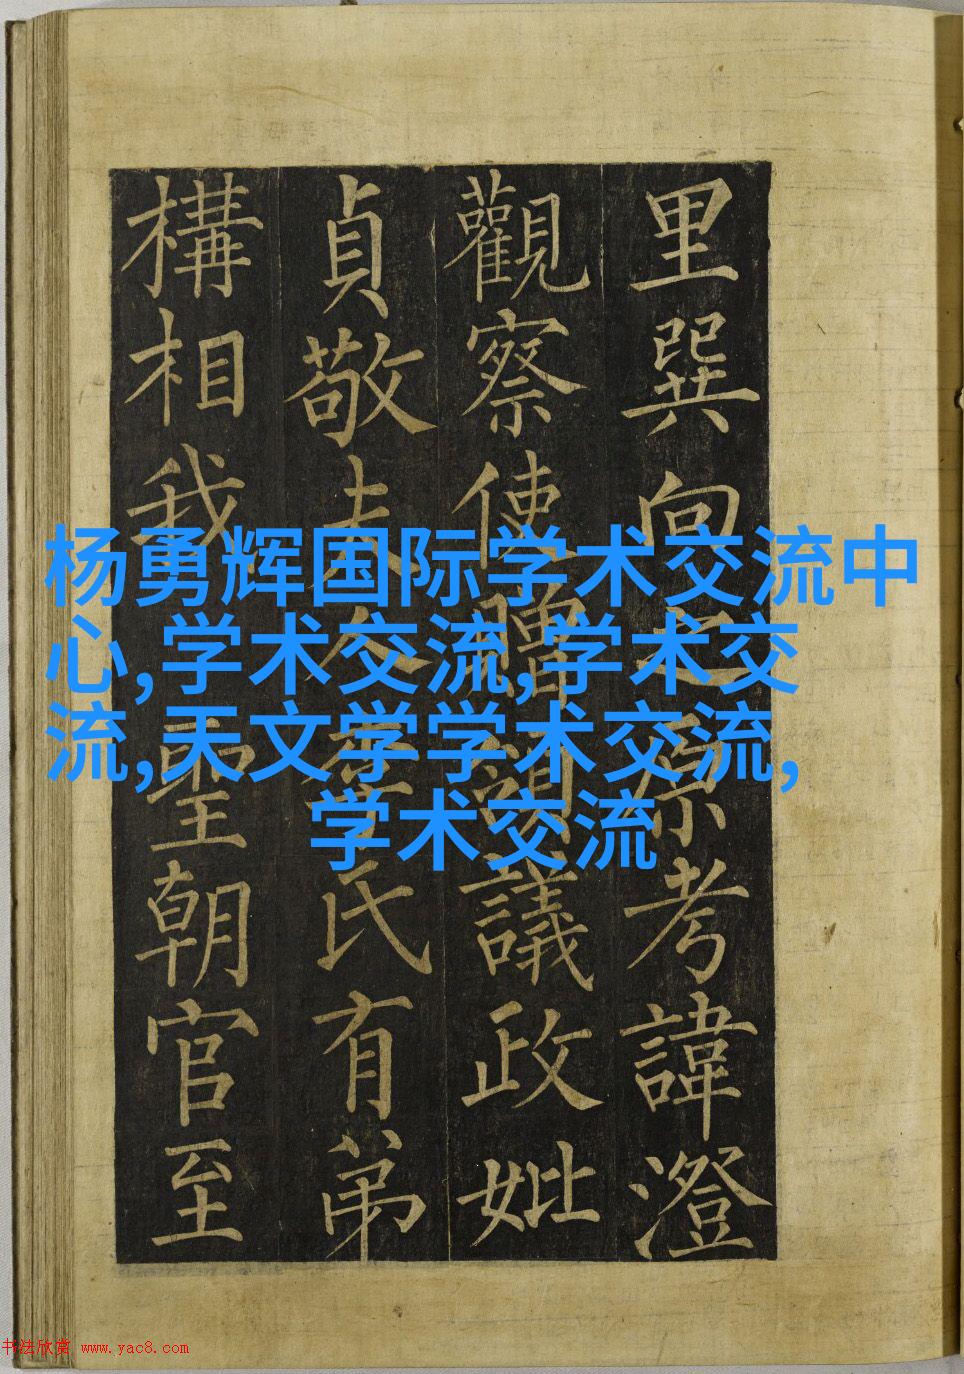 里巽向考諱澄
觀察使贈議政妣
貞敬夫人氏有弟
構相我聖朝官至
杨勇辉国际学术交流中
心,学术交流,学术交
流,天文学学术交流,
学术交流
书法欣赏 www.yac8.com